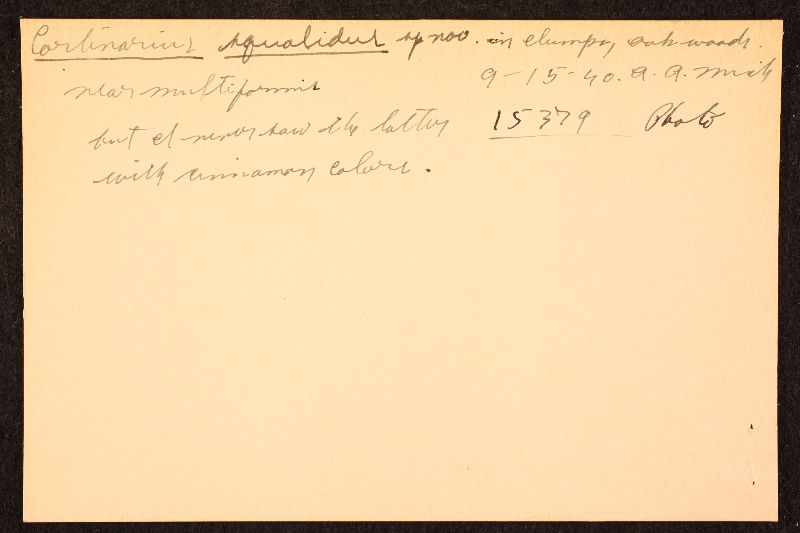 Cortinarius squalidus sp nov. in clumps, oak woods.
near multiformis 9-15-40. a. a. mich
but I never saw the latter 15379 Photo
with cinnamon colors.